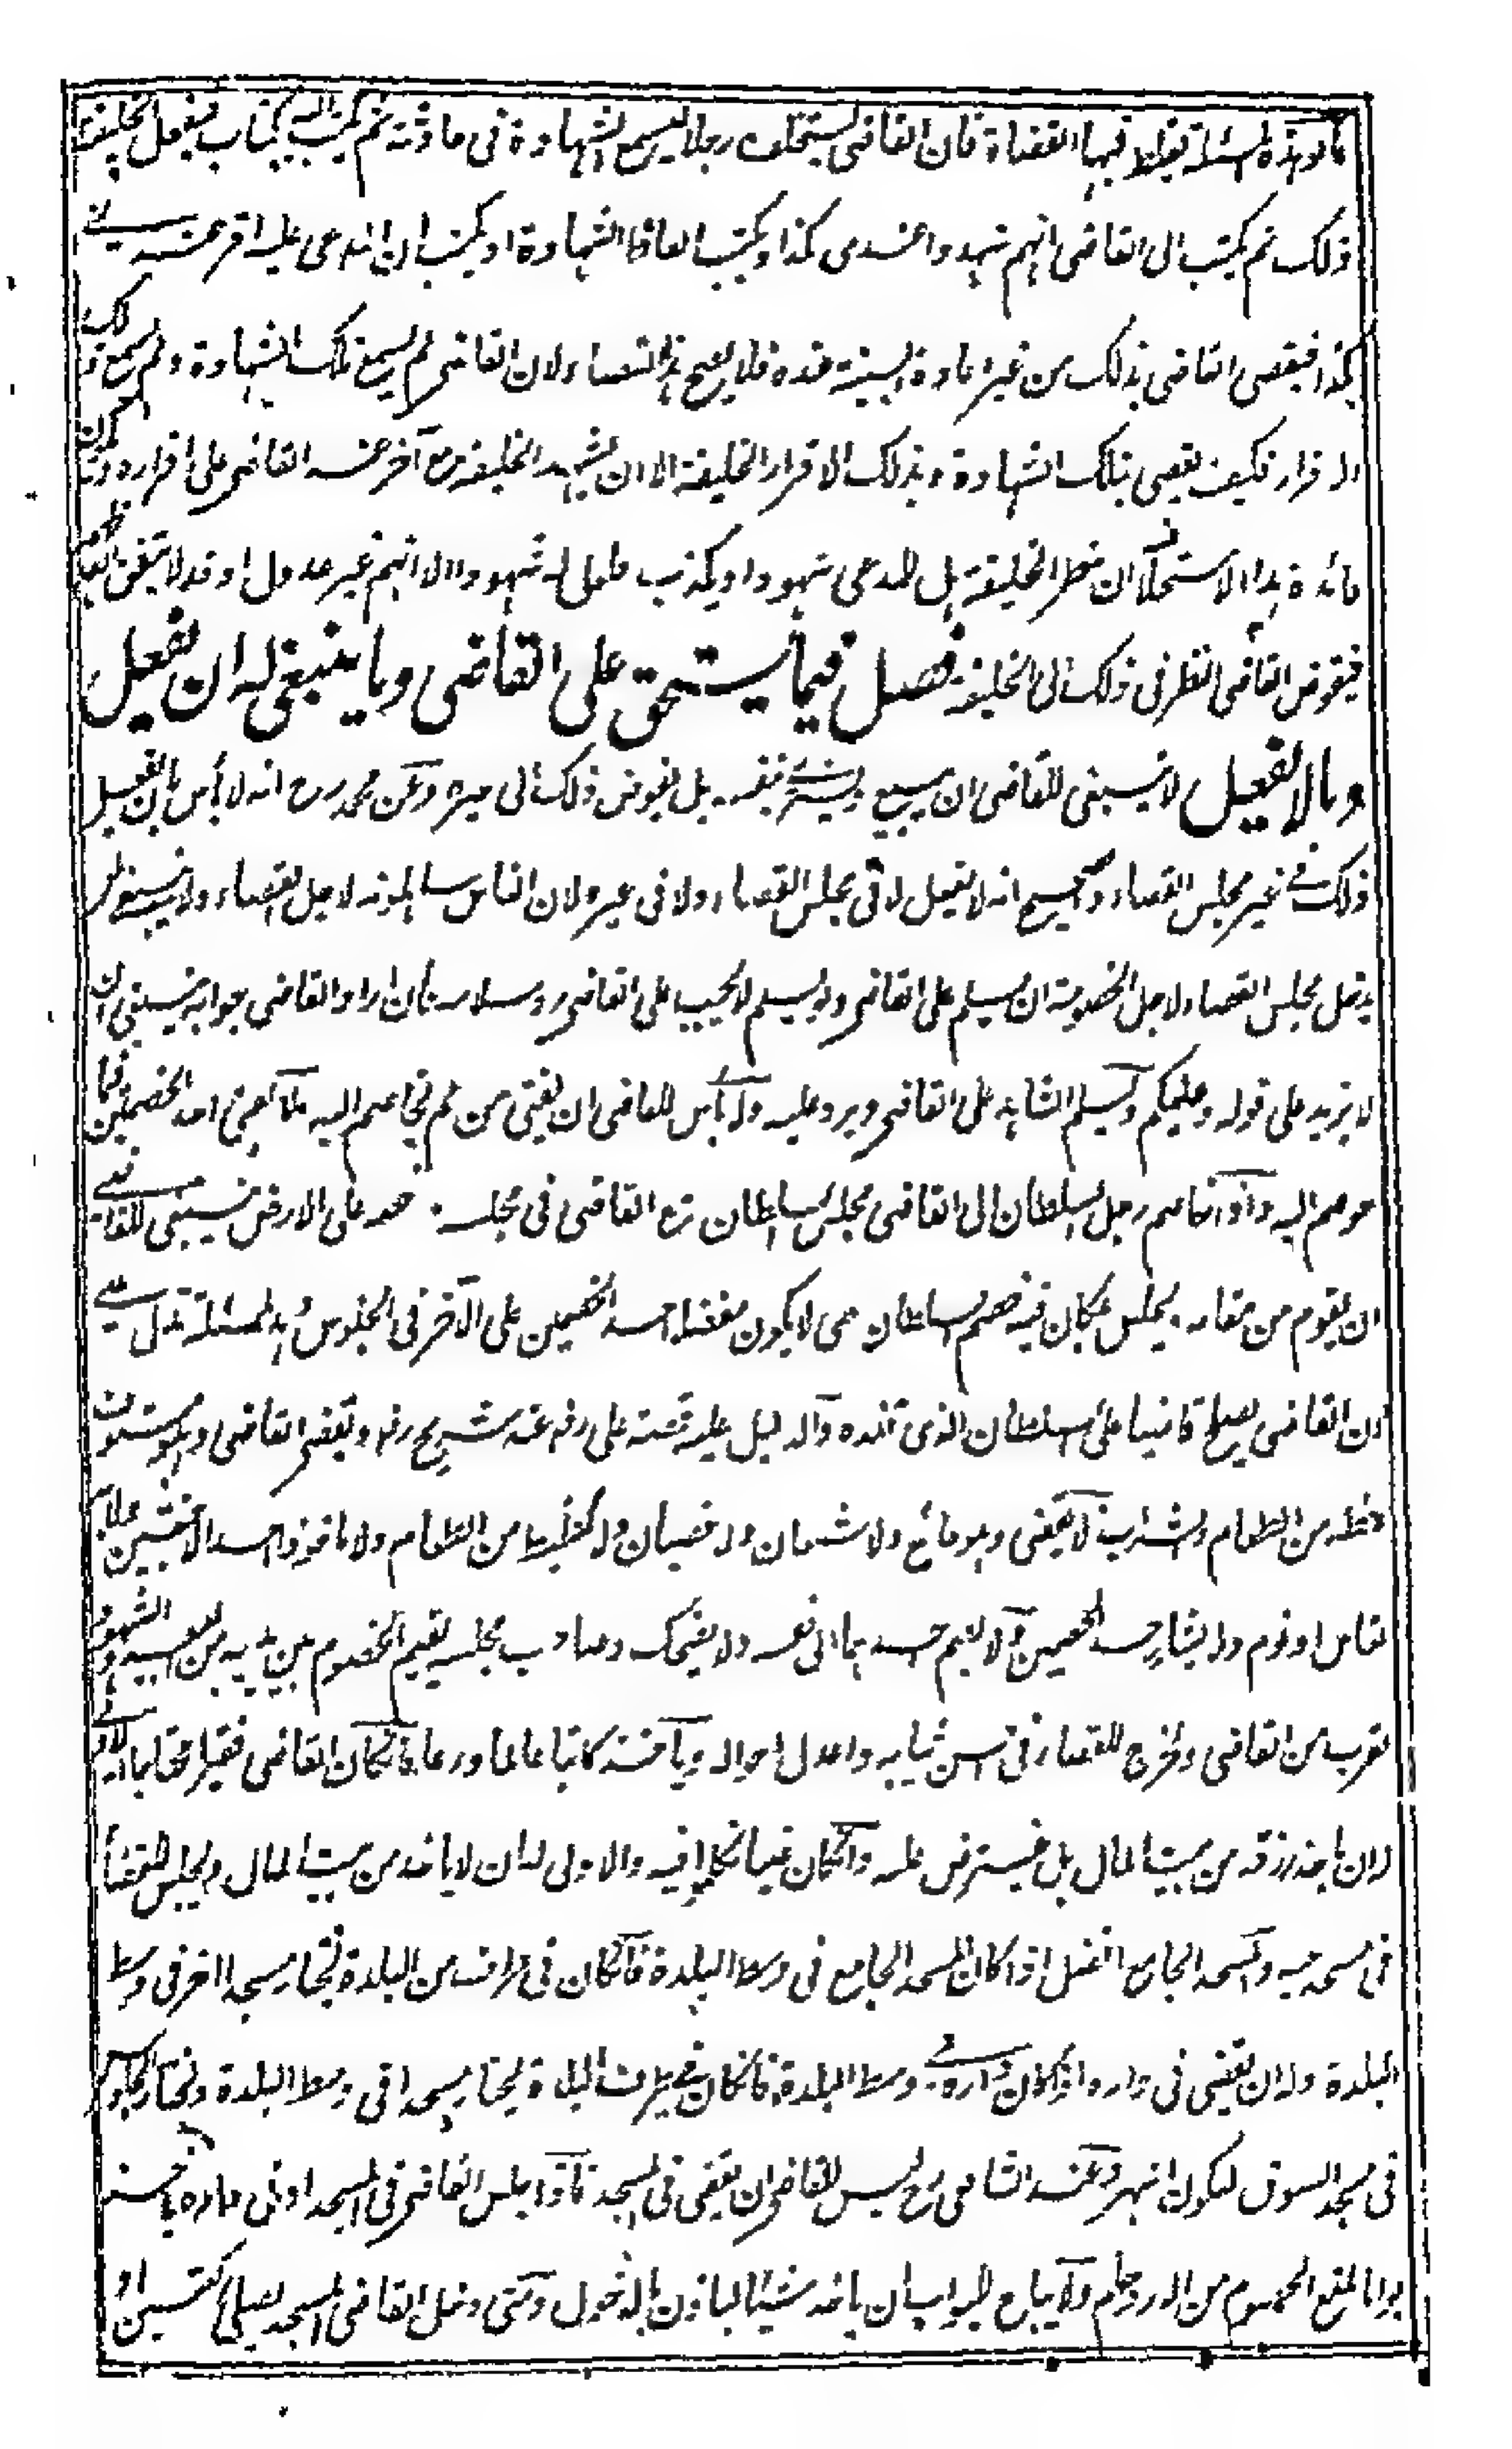 وهذه المسئلة يغلط فيها القضاة فان القاضى يستخلف رجلا ليسمع الشهادة فى حادثة ثم يكتب اليه بكتاب فيفعل الخليفة
ذلك ثم يكتب الى القاضى انهم شهدوا عندى بكذا ويكتب الفاظ الشهادة او يكتب ان المدعى عليه اقر عندى
بكذا فيقضى القاضى بذلك من غير اعادة البينة عنده فلا يصح هذا القضاء لان القاضى لم يسمع تلك الشهادة ولم يسمع ذلك
الاقرار فكيف يقضى بتلك الشهادة وبذلك الاقرار الخليفة الا ان يشهد الخليفة مع آخر عند القاضى على اقراره
فائدة هذا الاستخلاف ان ينظر الخليفة هل للمدعى شهود او يكذب فلعل له شهودا الا انهم غير عدول او قد لا يتفق
فيفوض القاضى النظر فى ذلك الى الخليفة فصل فيما يستحق على القاضى وما ينبغى له ان يفعل
وما لا يفعل لا ينبغى للقاضى ان يبيع ويشترى بنفسه بل يفوض ذلك الى غيره وعن محمد رح انه لا بأس بان يفعل
ذلك فى غير مجلس القضاء والصحيح انه لا يفعل لا فى مجلس القضاء ولا فى غيره لان الناس يساهلونه لاجل القضاء ولا ينبغى لمن
يدخل مجلس القضاء لاجل الخصومة ان يسلم على القاضى ولو سلم لا يجب على القاضى رد سلامه فان اراد القاضى جوابه ينبغى ان
لا يزيد على قوله وعليكم ويسلم الشاهد على القاضى ويرد عليه ولا بأس للقاضى ان يفتى من لم يخاصم اليه ولا يفتى احد الخصمين فيما
خوصم اليه واذا تخاصم رجل السلطان الى القاضى فجلس السلطان مع القاضى فى مجلسه وخصمه على الارض ينبغى للقاضى
ان يقوم من مقامه ويجلس مكانه فيه خصم السلطان حتى لا يكون مفضلا احد الخصمين على الآخر فى الجلوس وهذه المسئلة تدل على
ان القاضى يصلح قاضيا على السلطان الذى قلده والدليل عليه قصة على رضى عنه مع شريح رضى ويقضى القاضى وهو مستوف
حظه من الطعام والشراب ولا يقضى وهو جائع ولا شبعان ولا غضبان ولا كظيظ من الطعام ولا مأخوذ احد الاخبثين ولا
نعاس او نوم ولا يشار احد الخصمين ولا يضم احدهما الى نفسه ولا يضحك وصاحب مجلسه يقيم الخصوم بين يديه من البعد والشهود
تقرب من القاضى ويخرج للقضاء فى احسن ثيابه واعدل احواله ويأخذ كاتبا عالما ورعا فان كان القاضى فقيرا محتاجا
له ان يأخذ رزقه من بيت المال بل يفترض عليه وان كان غنيا تكلموا فيه والاولى له ان لا يأخذ من بيت المال ويجلس للقضاء
فى مسجد حيه والمسجد الجامع افضل اذا كان المسجد الجامع فى وسط البلدة فان كان فى طرف من البلدة يختار مسجدا آخر فى وسط
البلدة وله ان يقضى فى داره اذا كان داره فى وسط البلدة فان كان فى طرف البلدة يختار مسجدا فى وسط البلدة ويختار الجلوس
فى مسجد السوق ليكون اشهر وعند الشافعى رح ليس للقاضى ان يقضى فى المسجد فاذا جلس القاضى فى المسجد او فى داره يأخذ
بوابا ليمنع الخصوم من الازدحام ولا يباح للبواب ان يأخذ شيئا ليأذن بالدخول ومتى دخل القاضى المسجد يصلى ركعتين او